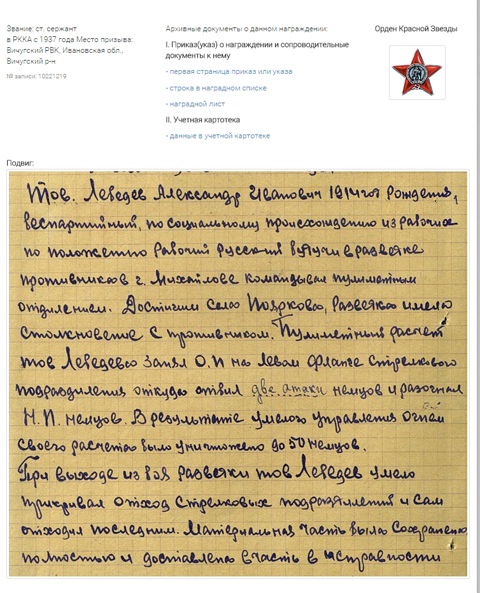 Звание: ст. сержант
в РККА с 1937 года Место призыва:
Вичугский РВК, Ивановская обл.,
Вичугский р-н
№ записи: 10221219
Архивные документы о данном награждении:
I. Приказ(указ) о награждении и сопроводительные
документы к нему
- первая страница приказ или указа
- строка в наградном списке
- наградной лист
II. Учетная картотека
- данные в учетной картотеке
Орден Красной Звезды
Подвиг:
Тов. Лебедев Александр Иванович 1914 год рождения,
беспартийный, по социальному происхождению из рабочих
по положению рабочий русский в разведке
противников в г. Михайлове командывал пулиметным
отделением. Достигши село Поярково, разведка имело
столкновение с противником. Пулиметный расчет
тов Лебедева занял О.П на левом фланге стрелкового
подразделения откуда отбил две атаки немцов и разогнал
Н.П. немцов. В результате умелого управления огнем
своего расчета было уничтожено до 50 немцов.
При выходе из боя разведки тов Лебедев умело
прикривал отход стрелковых подразделений и сам
отходил последним. Материальная часть была сохранена
полностью и доставлена в часть в исправности